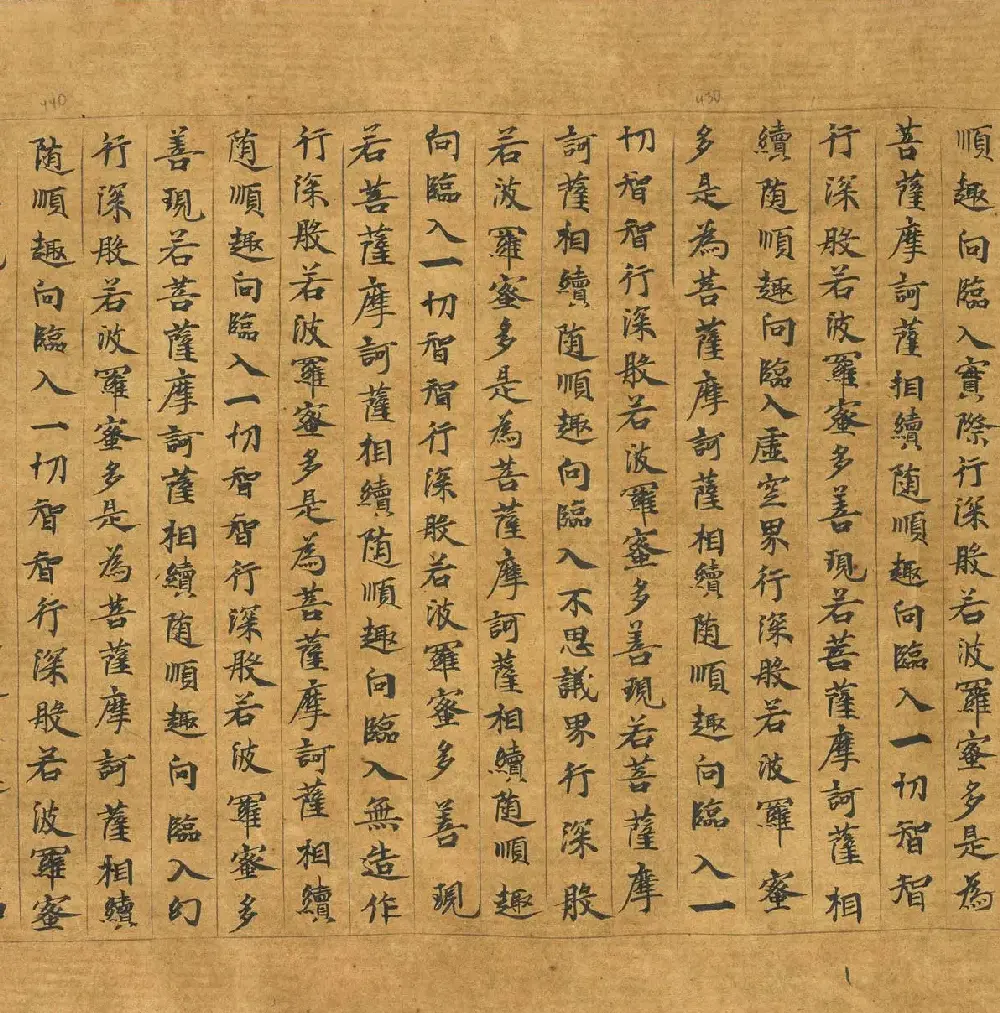 順趣向臨入實際行深般若波羅蜜多是為
菩薩摩訶薩相續随順趣向臨入一切智智
行深般若波羅蜜多善現若菩薩摩訶薩相
續随順趣向臨入虛空界行深般若波羅蜜
多是為菩薩摩訶薩相續随順趣向臨入一
切智智行深般若波羅蜜多善現若菩薩摩
訶薩相續随順趣向臨入不思議界行深般
若波羅蜜多是為菩薩摩訶薩相續随順趣
向臨入一切智智行深般若波羅蜜多善現
若菩薩摩訶薩相續随順趣向臨入無造作
行深般若波羅蜜多是為菩薩摩訶薩相續
随順趣向臨入一切智智行深般若波羅蜜多
善現若菩薩摩訶薩相續随順趣向臨入幻
行深般若波羅蜜多是為菩薩摩訶薩相續
随順趣向臨入一切智智行深般若波羅蜜
430
440